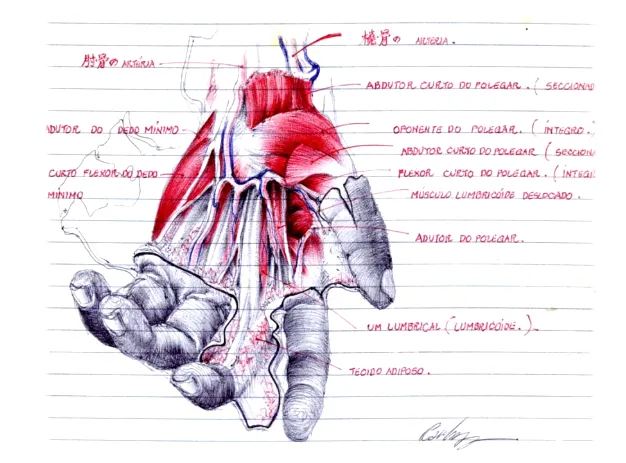 橈骨の ARTÉRIA.
肘骨の ARTÉRIA
ABDUTOR CURTO DO POLEGAR. ( SECCIONAD
ADUTOR DO DEDO MÍNIMO
OPONENTE DO POLEGAR. ( ÍNTEGRO.)
ABDUTOR CURTO DO POLEGAR ( SECCION
CURTO FLEXOR DO DEDO
MÍNIMO
FLEXOR CURTO DO POLEGAR. ( INTEG
MÚSCULO LUMBRICÓIDE DESLOCADO.
ADUTOR DO POLEGAR.
UM LUMBRICAL (LUMBRICÓIDE.)
TECIDO ADIPOSO.